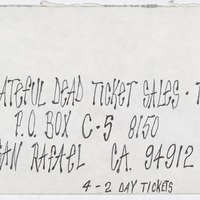 ATEFUL DEAD TICKET SALES · T
P.O. BOX C-S 8150
SAN RAFAEL CA. 94912
4-2 DAY TICKETS